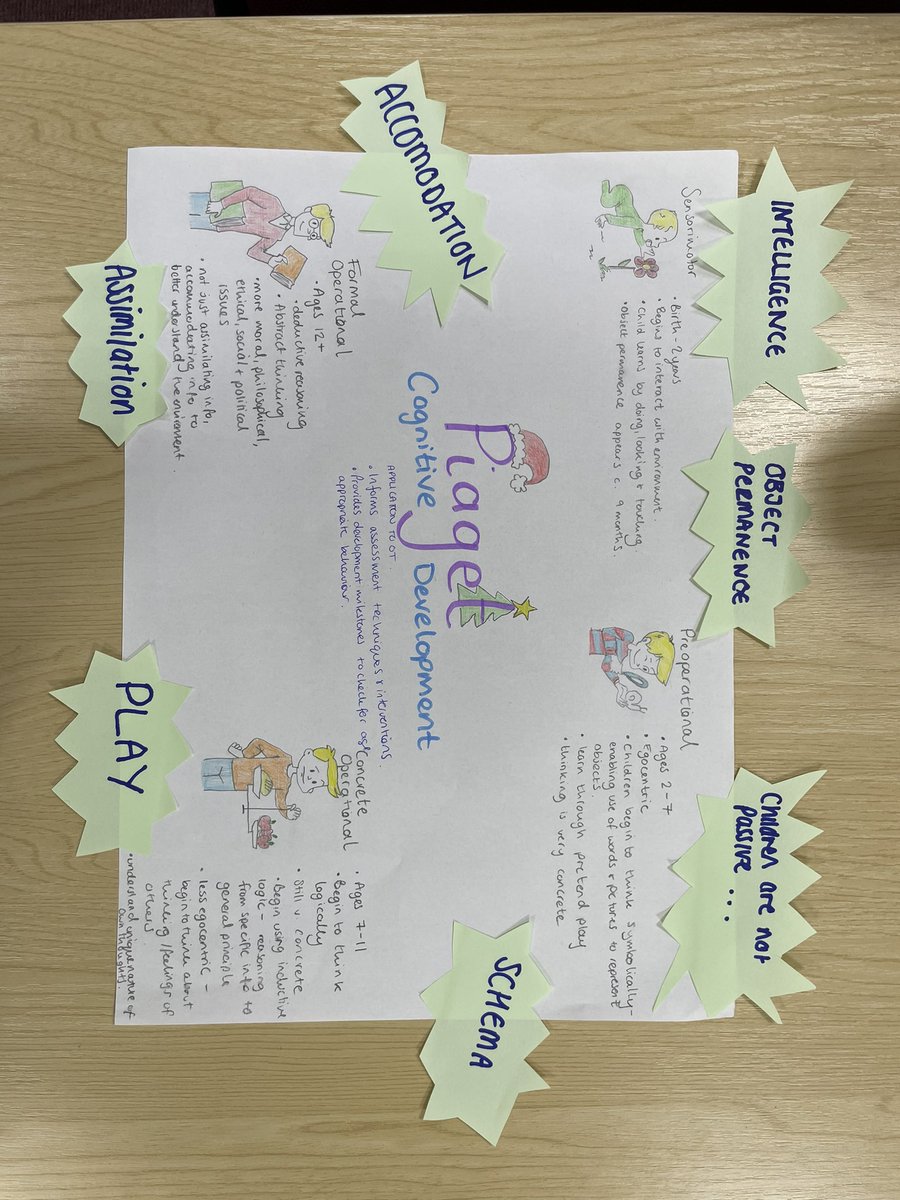 INTELLIGENCE
OBJECT
PERMANENCE
Children are not
passive ...
Sensorimotor
• Birth - 2 years
• Begins to interact with environment.
• Child learns by doing, looking & touching
• Object permanence appears c. 9 months.
Preoperational
• Ages 2-7
• Egocentric
• Children begin to think symbolically-
enabling use of words & pictures to represent
objects.
• learn through pretend play
• thinking is very concrete
ACCOMODATION
Piaget
Cognitive Development
APPLICATION TO OT.
• Informs assessment techniques & interventions
• Provides development milestones to check for age
appropriate behaviour.
SCHEMA
Formal
Operational
• Ages 12+
• deductive reasoning
• Abstract thinking
• more moral, philosophical,
ethical, social & political
issues
• not just assimilating info,
accommodating info to
better understand the environment.
Concrete
Operational
• Ages 7-11
• Begin to think
logically
• Still v. concrete
• Begin using inductive
logic - reasoning
from specific info to
general principle
• less egocentric -
begin to think about
thinking/feelings of
others
• understand unique nature of
own thoughts.
Assimilation
PLAY